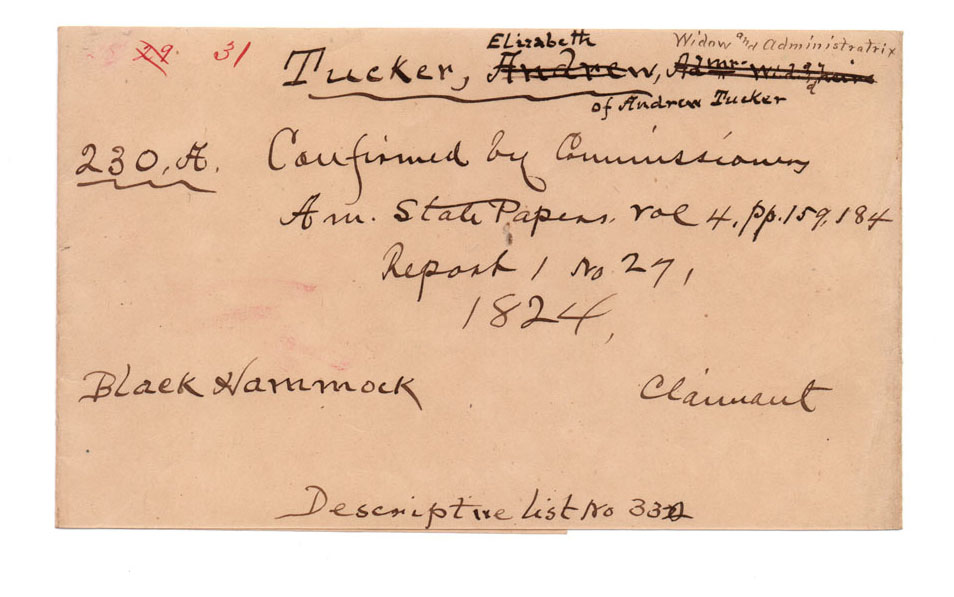 29. 31
Elizabeth Widow and Administratrix
Tucker, Andrew, Admr.
of Andrew Tucker
230. A. Confirmed by Commissioners
Am. State Papers. Vol 4, pp. 159, 184
Report 1 No 27,
1824,
Black Hammock Claimant
Descriptive list No 332